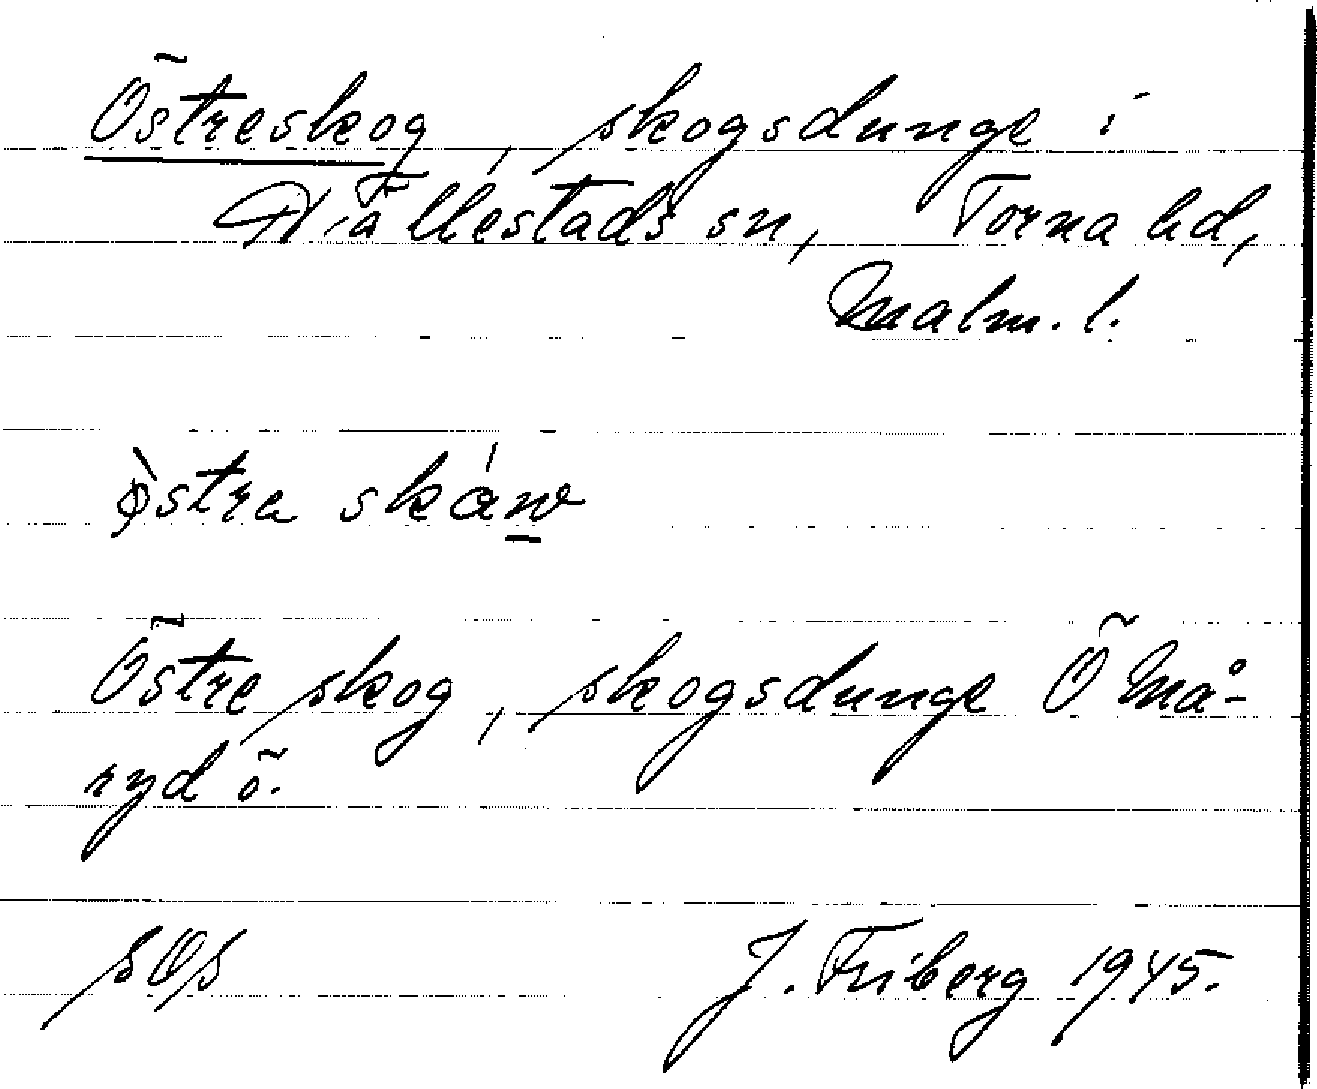 Östreskog, skogsdunge i
Hällestads sn, Torna hd,
Malm. l.
östra skáw
Östre skog, skogsdunge Ö Må-
ryd ö.
sOs J. Friberg 1945.